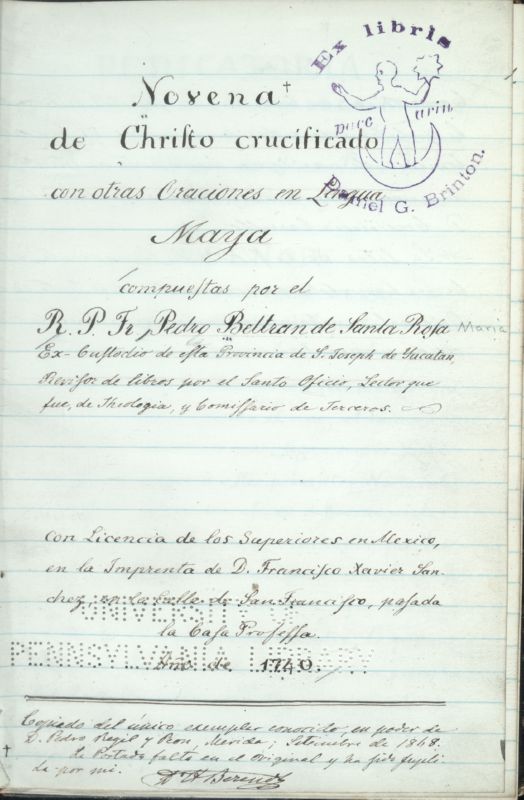 Ex libris
pace
Daniel G. Brinton.
1.
Novena†
de Chriſto crucificado
con otras Oraciones en Lengua
Maya
compueſtas por el
R. P. Fr. Pedro Beltran de Santa Roſa Maria
Ex-Cuſtodio de eſta Provincia de S. Joseph de Yucatan,
Reviſor de libros por el Santo Oficio, Lector que
fue, de Theologia, y Comiſſario de Terceros.
Con Licencia de los Superiores en Mexico,
en la Imprenta de D. Franciſco Xavier San-
chez, en la Calle de San Franciſco, paſada
la Caſa Profeſſa.
Año de 1740.
UNIVERSITY OF
PENNSYLVANIA LIBRARY
Copiado del único exemplar conocido, en poder de
D. Pedro Regil y Peon, Merida; Setiembre de 1868.
† La Portada falta en el original y ha ſido supli-
da por mi. C. H. Berendt